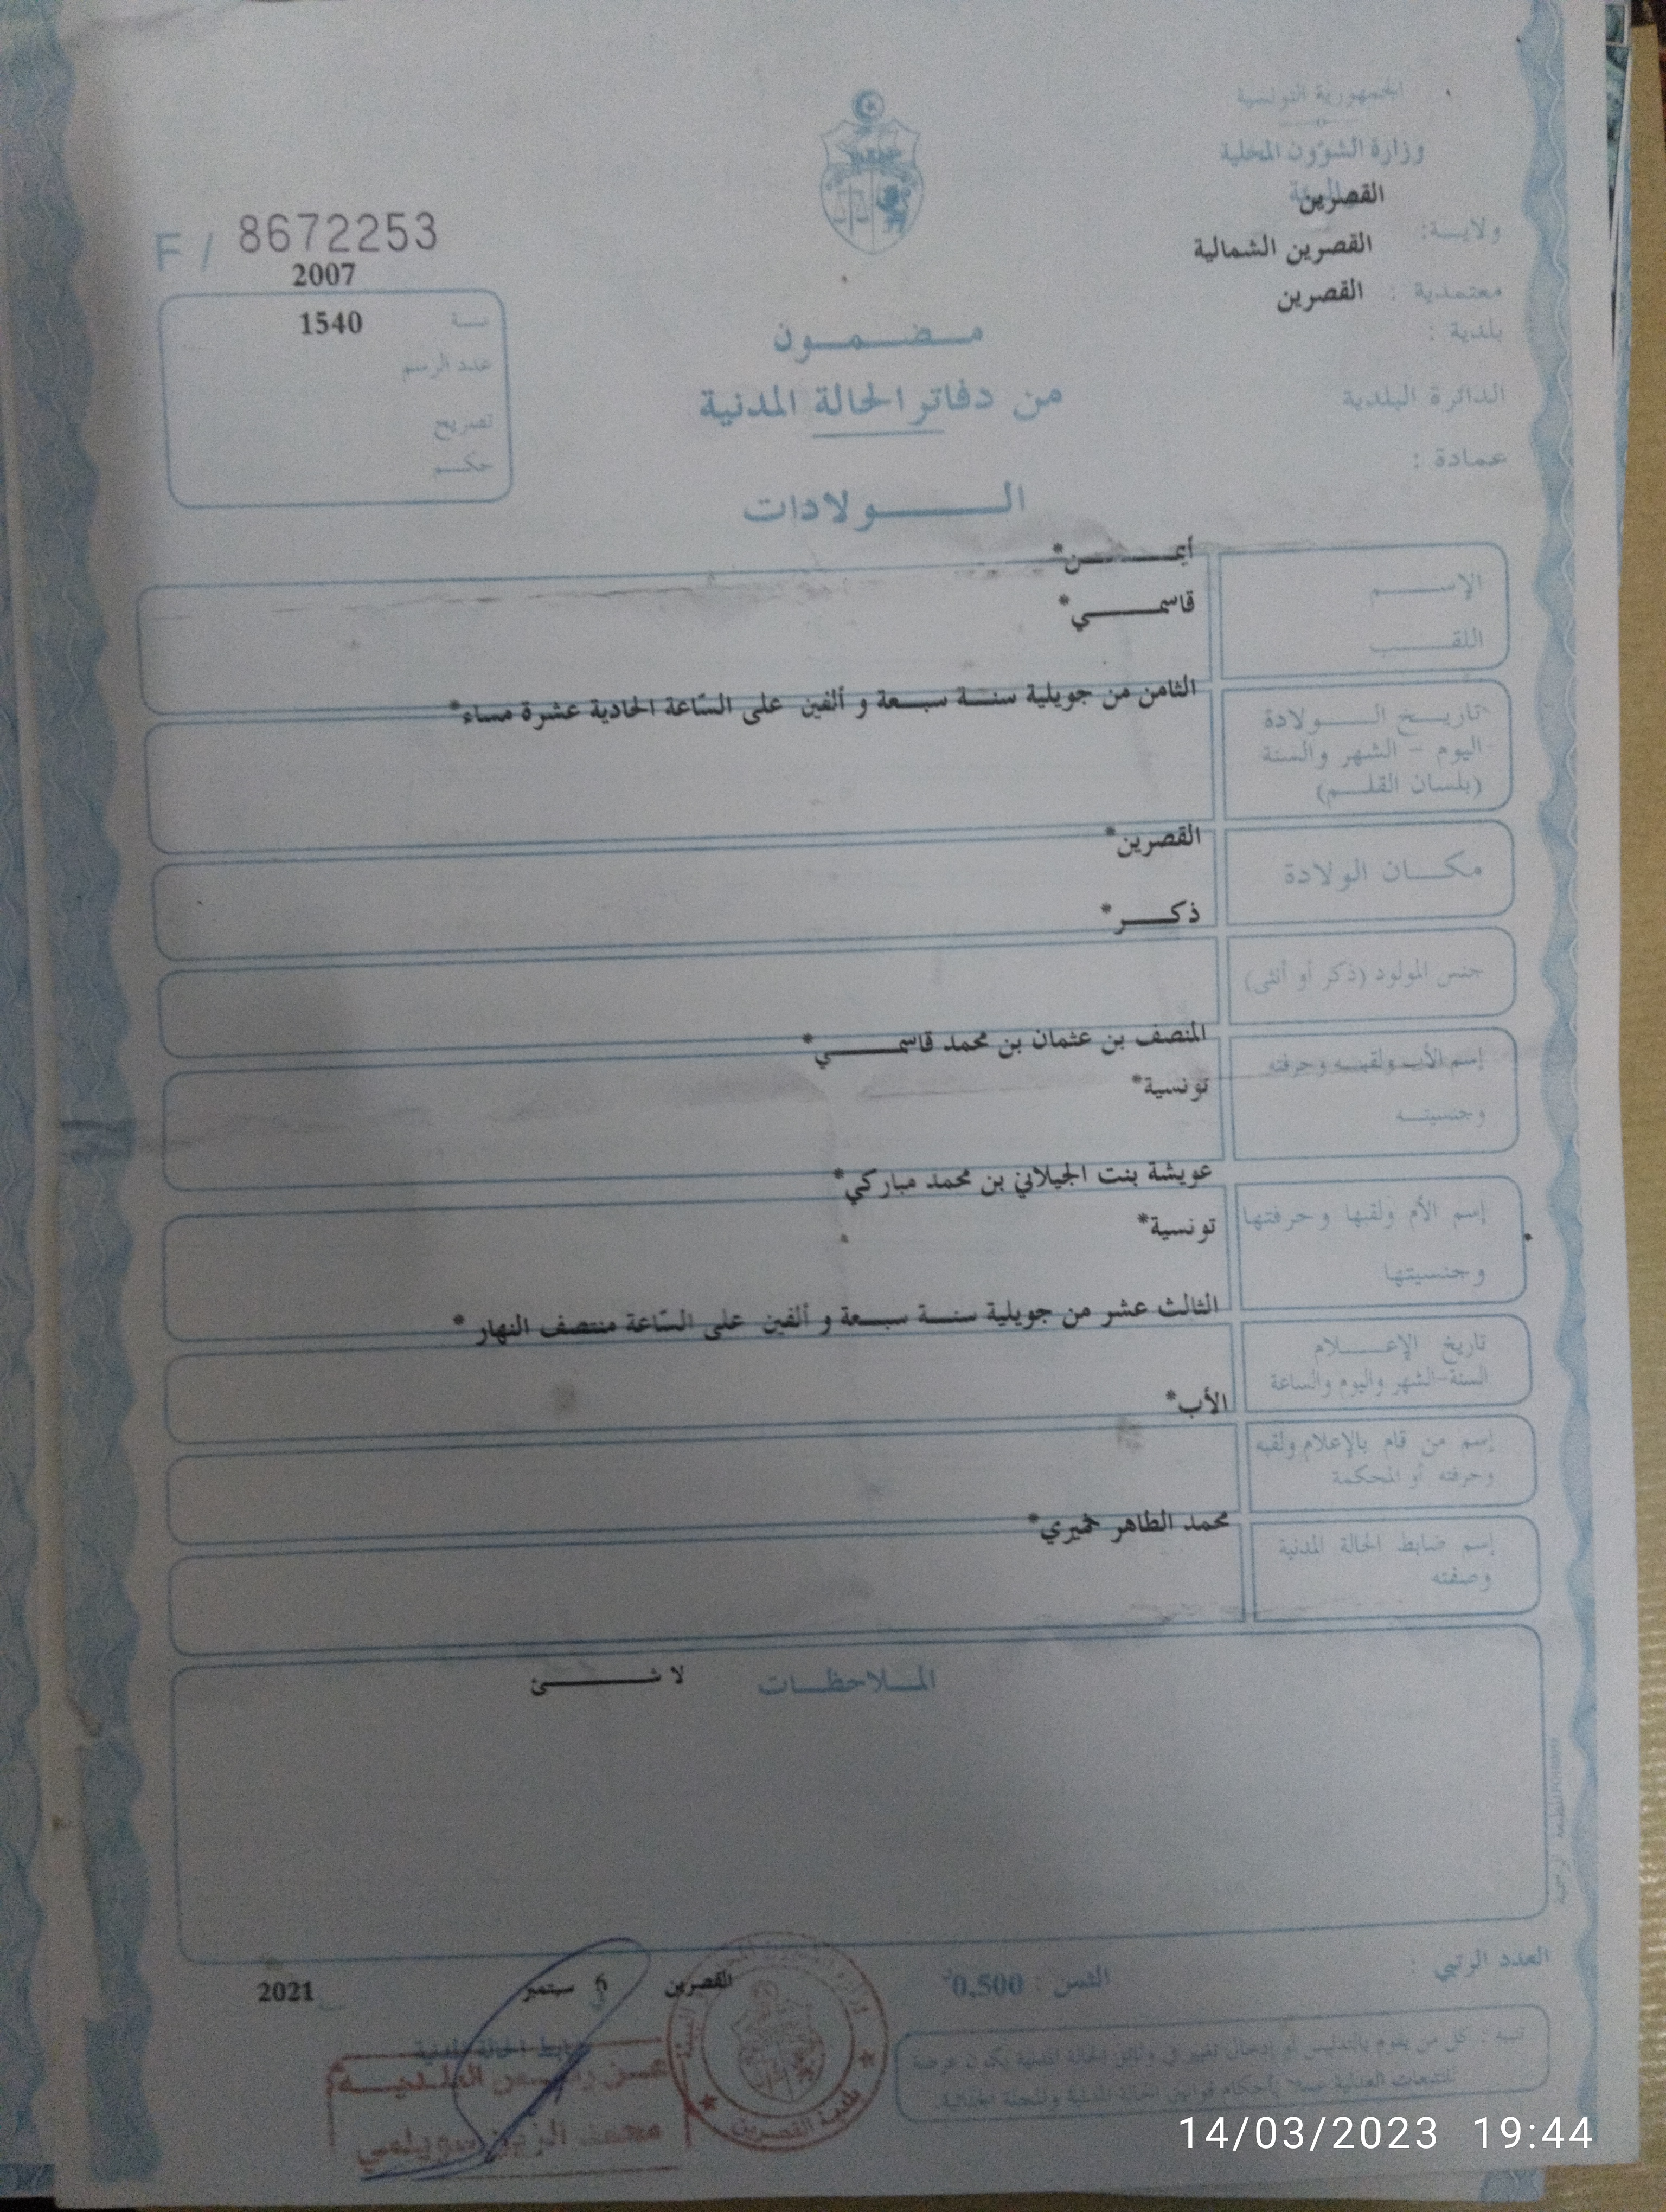 الجمهورية التونسية
وزارة الشؤون المحلية
القصرين
ولايــة:
القصرين الشمالية
معتمدية :
القصرين
بلدية :
الدائرة البلدية
عمادة :
F / 8672253
2007
سنة
1540
عدد الرسم
تصريح
حكم
مضمون
من دفاتر الحالة المدنية
الولادات
الإسم
أيمن*
اللقب
قاسمي*
تاريخ الولادة
اليوم - الشهر والسنة
(بلسان القلم)
الثامن من جويلية سنة سبعة و ألفين على السّاعة الحادية عشرة مساء*
مكان الولادة
القصرين*
جنس المولود (ذكر أو أنثى)
ذكر*
إسم الأب ولقبه وحرفته
وجنسيته
المنصف بن عثمان بن محمد قاسمي*
تونسية*
إسم الأم ولقبها وحرفتها
وجنسيتها
عويشة بنت الجيلاني بن محمد مباركي*
تونسية*
تاريخ الإعلام
السنة-الشهر واليوم والساعة
الثالث عشر من جويلية سنة سبعة و ألفين على السّاعة منتصف النهار *
إسم من قام بالإعلام ولقبه
وحرفته أو المحكمة
الأب*
إسم ضابط الحالة المدنية
وصفته
محمد الطاهر خميري*
الملاحظات
لا شئ
العدد الرتبي :
الثمن : 0,500
القصرين
سبتمبر
2021
ضابط الحالة المدنية
عن رئيس البلدية
بلدية القصرين
تنبيه : كل من يقوم بالتدليس أو إدخال تغيير في وثائق الحالة المدنية يكون عرضة
للتتبعات العدلية عملا بأحكام قوانين الحالة المدنية والمجلة الجنائية.
14/03/2023 19:44